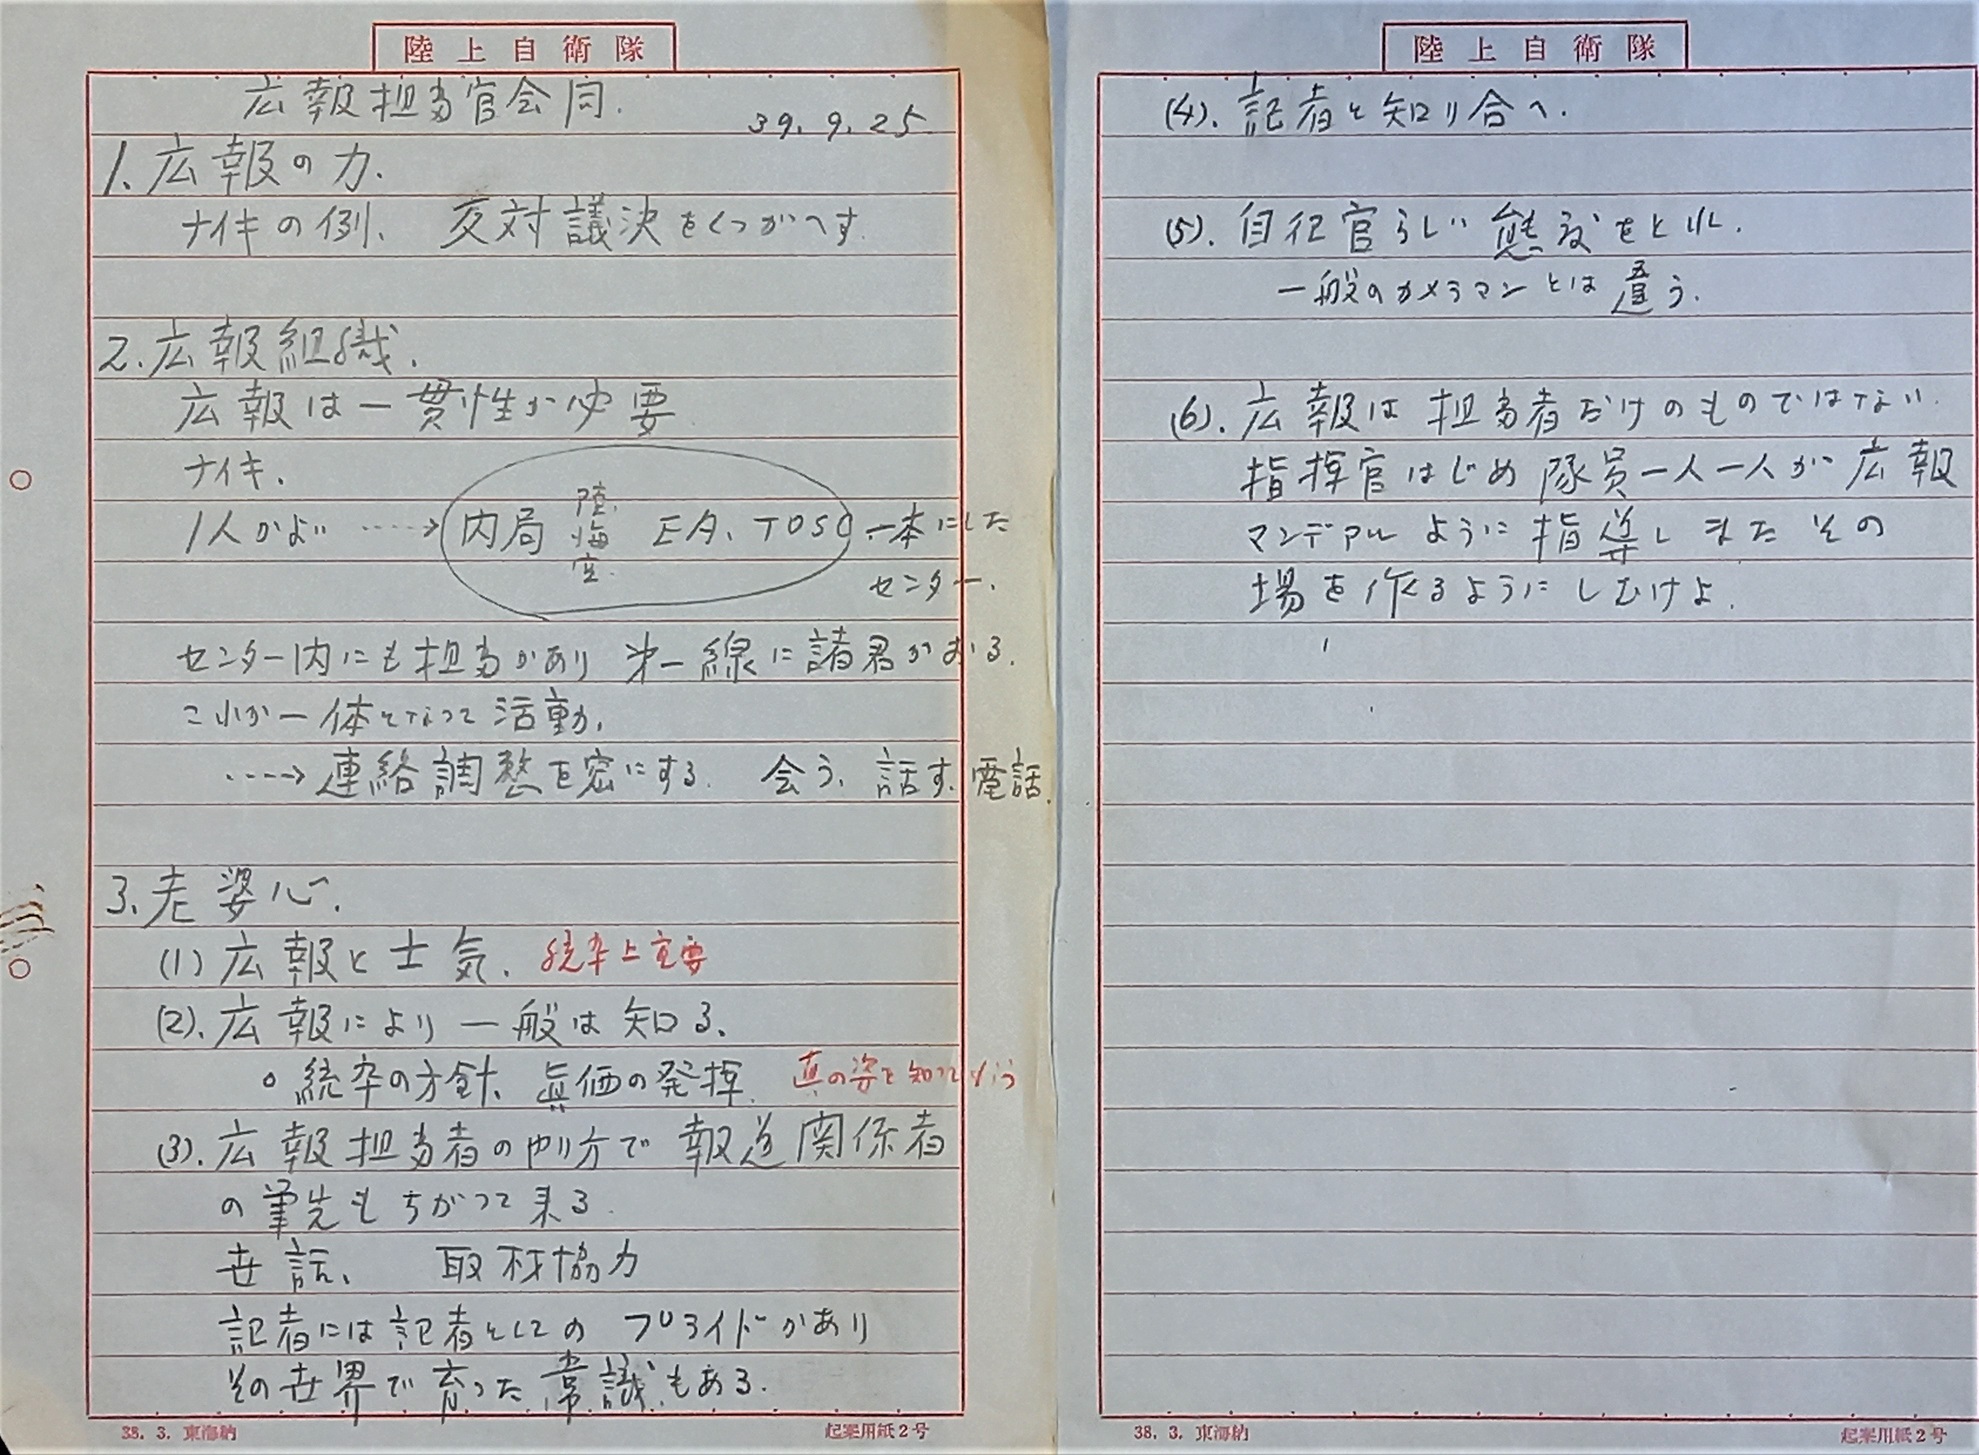 陸上自衛隊
広報担当官会同.
39.9.25
1.広報の力.
ナイキの例、 反対議決をくつがへす.
2.広報組織.
広報は一貫性が必要
ナイキ.
1人がよい ‥‥→ 内局 陸.海.空. EA、TOSO 一本にした
センター.
センター内にも担当があり 第一線に諸君がおる.
これが一体となって活動.
‥‥→連絡調整を密にする. 会う、話す、電話.
3.老婆心.
(1)広報と士気. 統率上重要
(2).広報により一般は知る.
○統率の方針、眞価の発揮. 真の姿を知ってもらう
(3).広報担当者のやり方で報道関係者
の筆先もちがって来る.
世話、 取材協力
記者には記者としてのプライドがあり
その世界で育った常識もある.
38.3.東海納
起案用紙2号
陸上自衛隊
(4).記者と知り合へ.
(5).自衛官らしい態度をとれ.
一般のカメラマンとは違う.
(6).広報は担当者だけのものではない.
指揮官はじめ隊員一人一人が広報
マンデアルように指導しまたその
場を作るようにしむけよ.
38.3.東海納
起案用紙2号